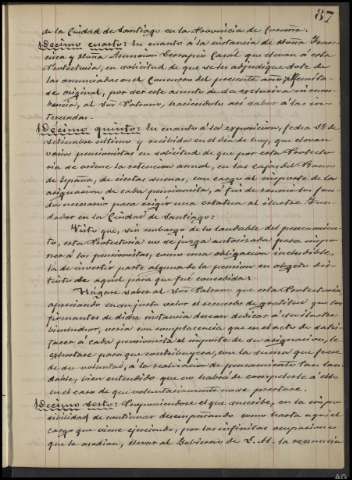 87
de la Ciudad de Santiago en la Provincia de Coruña.
Décimo cuarto: En cuanto á la instancia de Doña Fran-
cisca y Doña Asunción Serapio Casal que elevan á esta
Protectoria, en solicitud de que se les adjudique dote de
las anunciadas en el Concurso del presente año, remitir
se original, por ser este asunto de la exclusiva in-
cumbencia, al Sor Patrono, haciéndolo así saber á las in-
teresadas.
Décimo quinto: En cuanto á la exposición, fecha 28 de
setiembre último y recibida en el día de hoy, que elevan
varios pensionistas en solicitud de que por esta Protecto-
ria se ordene la retención anual, en las cajas del Banco
de España, de ciertas sumas, con cargo al importe de la
asignación de cada pensionista, á fin de reunir los fon-
dos necesarios para erigir una estatua al ilustre Fun-
dador en la Ciudad de Santiago:
Visto que, sin embargo de lo laudable del pensamien-
to, esta Protectoria no se juzga autorizada para impo-
ner á los pensionistas, como una obligación ineludible,
la de invertir parte alguna de la pensión en objeto dis-
tinto de aquel para que fue concedida:
Hágase saber al Sor Patrono que esta Protectoria,
apreciando en su justo valor el recuerdo de gratitud que los
firmantes de dicha instancia desean dedicar á su ilustre
bienhechor, vería con complacencia que en el acto de satis-
facer á cada pensionista el importe de su asignación, le
exhortase para que contribuyese, con la suma que fuere
de su voluntad, á la realización de pensamiento tan lau-
dable, bien entendido que no habrá de compelerse á ello
en el caso de que voluntariamente no se prestase.
Décimo sexto: Proponiéndose el que suscribe, en la impo-
sibilidad de continuar desempeñando como hasta aquí el
cargo que viene ejerciendo, por las infinitas ocupaciones
que le asedian, elevar al Gobierno de S. M. la renuncia